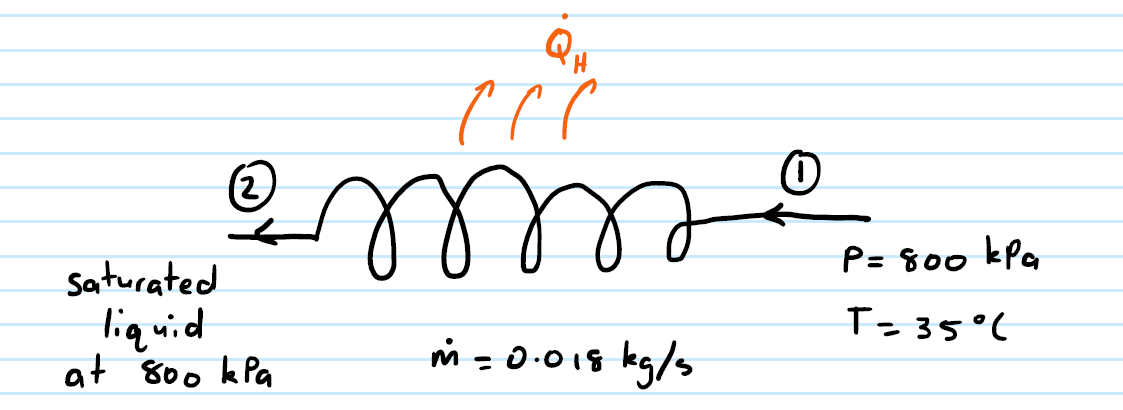 Q̇H
②
①
saturated
liquid
at 800 kPa
ṁ = 0.018 kg/s
P = 800 kPa
T = 35°C